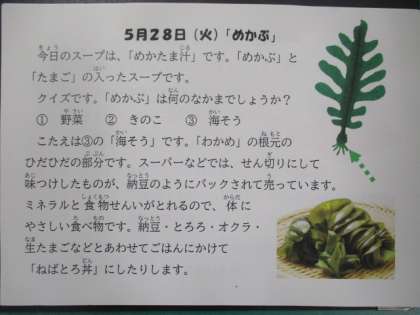 5月28日（火）「めかぶ」
今日のスープは、「めかたま汁」です。「めかぶ」と
「たまご」の入ったスープです。
クイズです。「めかぶ」は何のなかまでしょうか？
① 野菜　② きのこ　③ 海そう
こたえは③の「海そう」です。「わかめ」の根元の
ひだひだの部分です。スーパーなどでは、せん切りにして
味つけしたものが、納豆のようにパックされて売っています。
ミネラルと食物せんいがとれるので、体に
やさしい食べ物です。納豆・とろろ・オクラ・
生たまごなどとあわせてごはんにかけて
「ねばとろ丼」にしたりします。